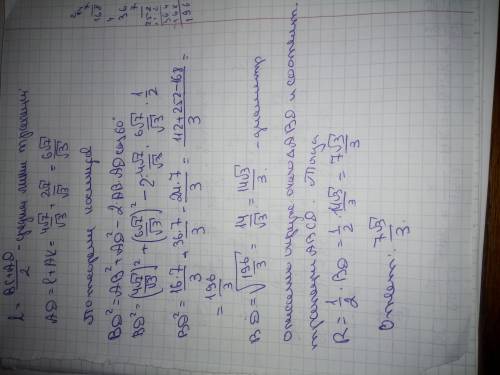 168
4 36
7
252
364
-168
196
l = (BC+AD)/2 - средняя линия трапеции
AD = l + AK = 4√7/√3 + 2√7/√3 = 6√7/√3
По теореме косинусов
BD² = AB² + AD² - 2 AB·AD cos 60°
BD² = (4√7/√3)² + (6√7/√3)² - 2·4√7/√3 · 6√7/√3 · 1/2
BD² = 16·7/3 + 36·7/3 - 24·7/3 = (112+252-168)/3 =
= 196/3
BD = √(196/3) = 14/√3 = 14√3/3 - диаметр
описанной окружн около ΔABD и соответст.
трапеции ABCD. Тогда
R = 1/2 · BD = 1/2 · 14√3/3 = 7√3/3
Ответ: 7√3/3.